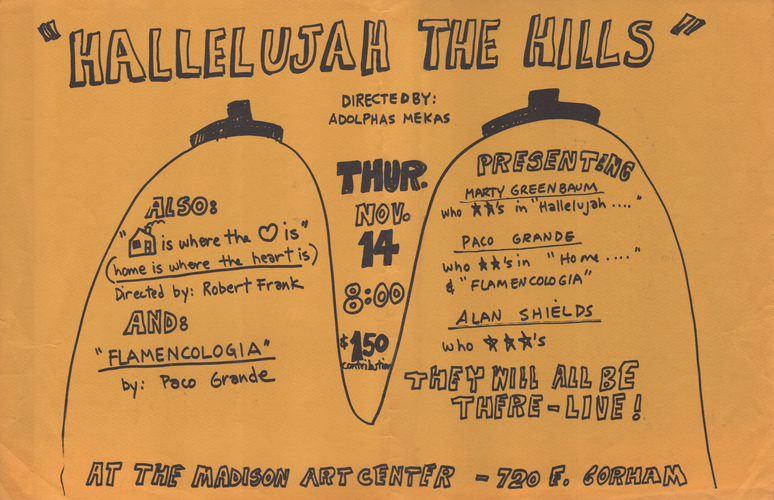 "HALLELUJAH THE HILLS"
DIRECTED BY:
ADOLPHAS MEKAS
ALSO:
" is where the ♡ is"
(home is where the heart is)
Directed by: Robert Frank
AND:
"FLAMENCOLOGIA"
by: Paco Grande
THUR.
NOV.
14
8:00
$1.50
contribution
PRESENTING
MARTY GREENBAUM
who ★★'s in "Hallelujah ...."
PACO GRANDE
who ★★'s in "Home ...."
& "FLAMENCOLOGIA"
ALAN SHIELDS
who ★★★'s
THEY WILL ALL BE
THERE-LIVE!
AT THE MADISON ART CENTER - 720 E. GORHAM